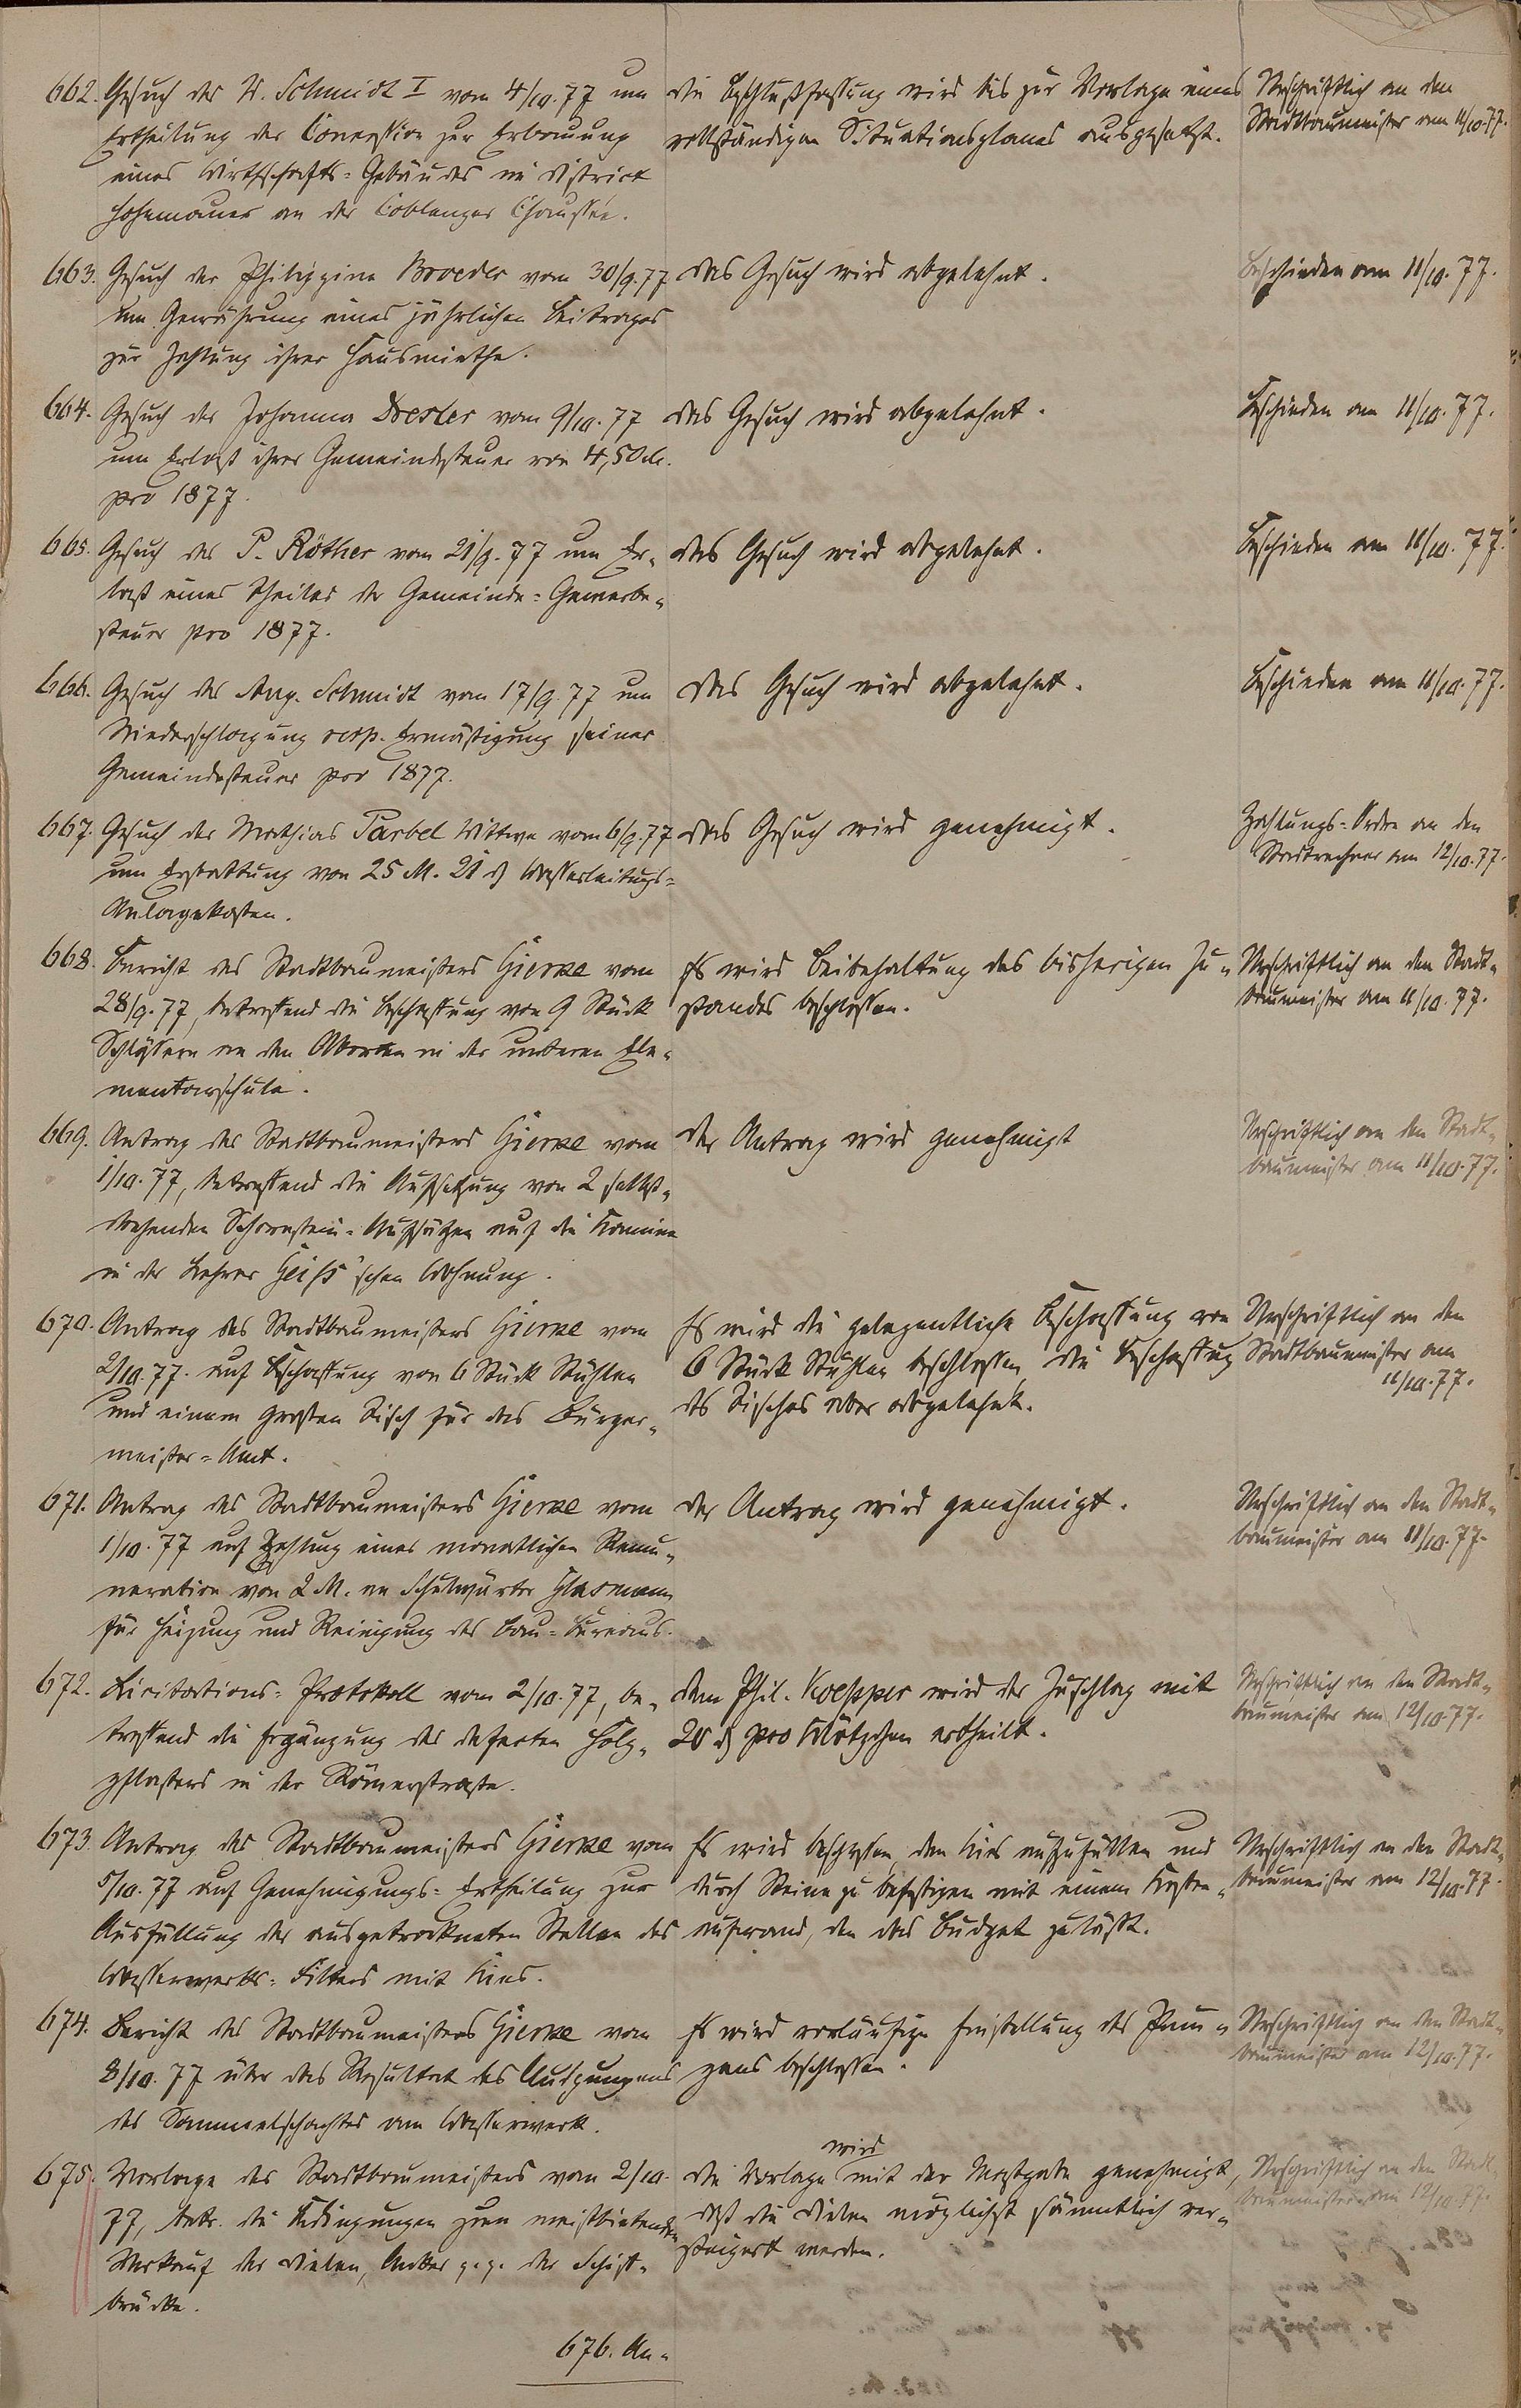 662. Gesuch des W. Schmidt I vom 4/10.77 um
Ertheilung der Concession zur Erbauung
eines Wirthschafts=Gebäudes im District
Hohemauer an der Coblenzer Chaussée.
die Beschlußfassung wird bis zur Vorlage eines
vollständigen Situationsplanes ausgesetzt.
Urschriftlich an den
Stadtbaumeister am 11/10.77.
663. Gesuch der Philippine Broeder vom 30/9.77
um Gewährung eines jährlichen Beitrages
zur Zahlung ihrer Hausmiethe.
das Gesuch wird abgelehnt.
beschieden am 11/10.77.
664. Gesuch der Johanna Dresler vom 9/10.77
um Erlaß ihrer Gemeindesteuer von 4,50 M.
pro 1877.
das Gesuch wird abgelehnt.
Beschieden am 11/10.77.
665. Gesuch des P. Röther vom 21/9.77 um Er-
laß eines Theiles der Gemeinde=Gewerbe-
steuer pro 1877.
das Gesuch wird abgelehnt.
Beschieden am 11/10.77.
666. Gesuch des Aug. Schmidt vom 17/9.77 um
Niederschlagung resp. Ermäßigung seiner
Gemeindesteuer pro 1877.
das Gesuch wird abgelehnt.
Beschieden am 11/10.77.
667. Gesuch der Mathias Parbel Wittwe vom 6/9.77
um Erstattung von 25 M. 21 ₰ Wasserleitungs=
Anlagekosten.
das Gesuch wird genehmigt.
Zahlungs=Ordre an den
Stadtrechner am 12/10.77.
668. Bericht des Stadtbaumeisters Gierke vom
28/9.77, betreffend die Beschaffung von 9 Stück
Schlössern an den Aborten in der unteren Ele-
mentarschule.
Es wird Beibehaltung des bisherigen Zu-
standes beschlossen.
Urschriftlich an den Stadt-
baumeister am 11/10.77.
669. Antrag des Stadtbaumeisters Gierke vom
1/10.77, betreffend die Aufsetzung von 2 selbst-
drehenden Schornstein=Aufsätzen auf die Kamine
in der Lehrer Geiß'schen Wohnung.
der Antrag wird genehmigt
Urschriftlich an den Stadt-
baumeister am 11/10.77.
670. Antrag des Stadtbaumeisters Gierke vom
2/10.77. auf Beschaffung von 6 Stück Stühlen
und einem großen Tisch für das Bürger-
meister=Amt.
Es wird die gelegentliche Beschaffung von
6 Stück Stühlen beschlossen, die Beschaffung
des Tisches aber abgelehnt.
Urschriftlich an den
Stadtbaumeister am
11/10.77.
671. Antrag des Stadtbaumeisters Gierke vom
1/10.77 auf Zahlung einer monatlichen Remu-
neration von 2 M. an Schulwärter Glasmann
für Heizung und Reinigung des Bau=Bureaus.
der Antrag wird genehmigt.
Urschriftlich an den Stadt-
baumeister am 11/10.77.
672. Licitations=Protokoll vom 2/10.77, be-
treffend die Ergänzung des defecten Holz-
pflasters in der Römerstraße.
dem Phil. Koepper wird der Zuschlag mit
20 ₰ pro Klötzchen ertheilt.
Urschriftlich an den Stadt-
baumeister am 12/10.77.
673. Antrag des Stadtbaumeisters Gierke vom
5/10.77 auf Genehmigungs=Ertheilung zur
Ausfüllung der ausgetrockneten Stellen des
Wasserwerks=Filters mit Kies.
Es wird beschlossen, den Kies aufzufüllen und
durch Steine zu befestigen mit einem Kosten-
aufwand, den das Budget zuläßt.
Urschriftlich an den Stadt-
baumeister am 12/10.77.
674. Bericht des Stadtbaumeisters Gierke vom
8/10.77 über das Resultat des Auspumpens
des Sammelschachtes am Wasserwerk.
Es wird vorläufige Einstellung des Pum-
pens beschlossen.
Urschriftlich an den Stadt-
baumeister am 12/10.77.
675. Vorlage des Stadtbaumeisters vom 2/10.
77, betr. die Bedingungen zum meistbietenden
Verkauf der Dielen, Anker p.p. der Schiff-
brücke.
wird
die Vorlage mit der Maßgabe genehmigt,
daß die Dielen möglichst sämmtlich ver-
steigert werden.
Urschriftlich an den Stadt-
baumeister am 12/10.77.
676. An-